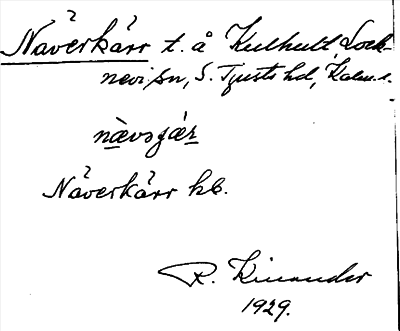 Näverkärr t. å Kulhult, Lock-
nevi sn, S. Tjusts hd, Kalm. l.
nævsgǽr
Näverkärr kb.
R. Kinander
1929.